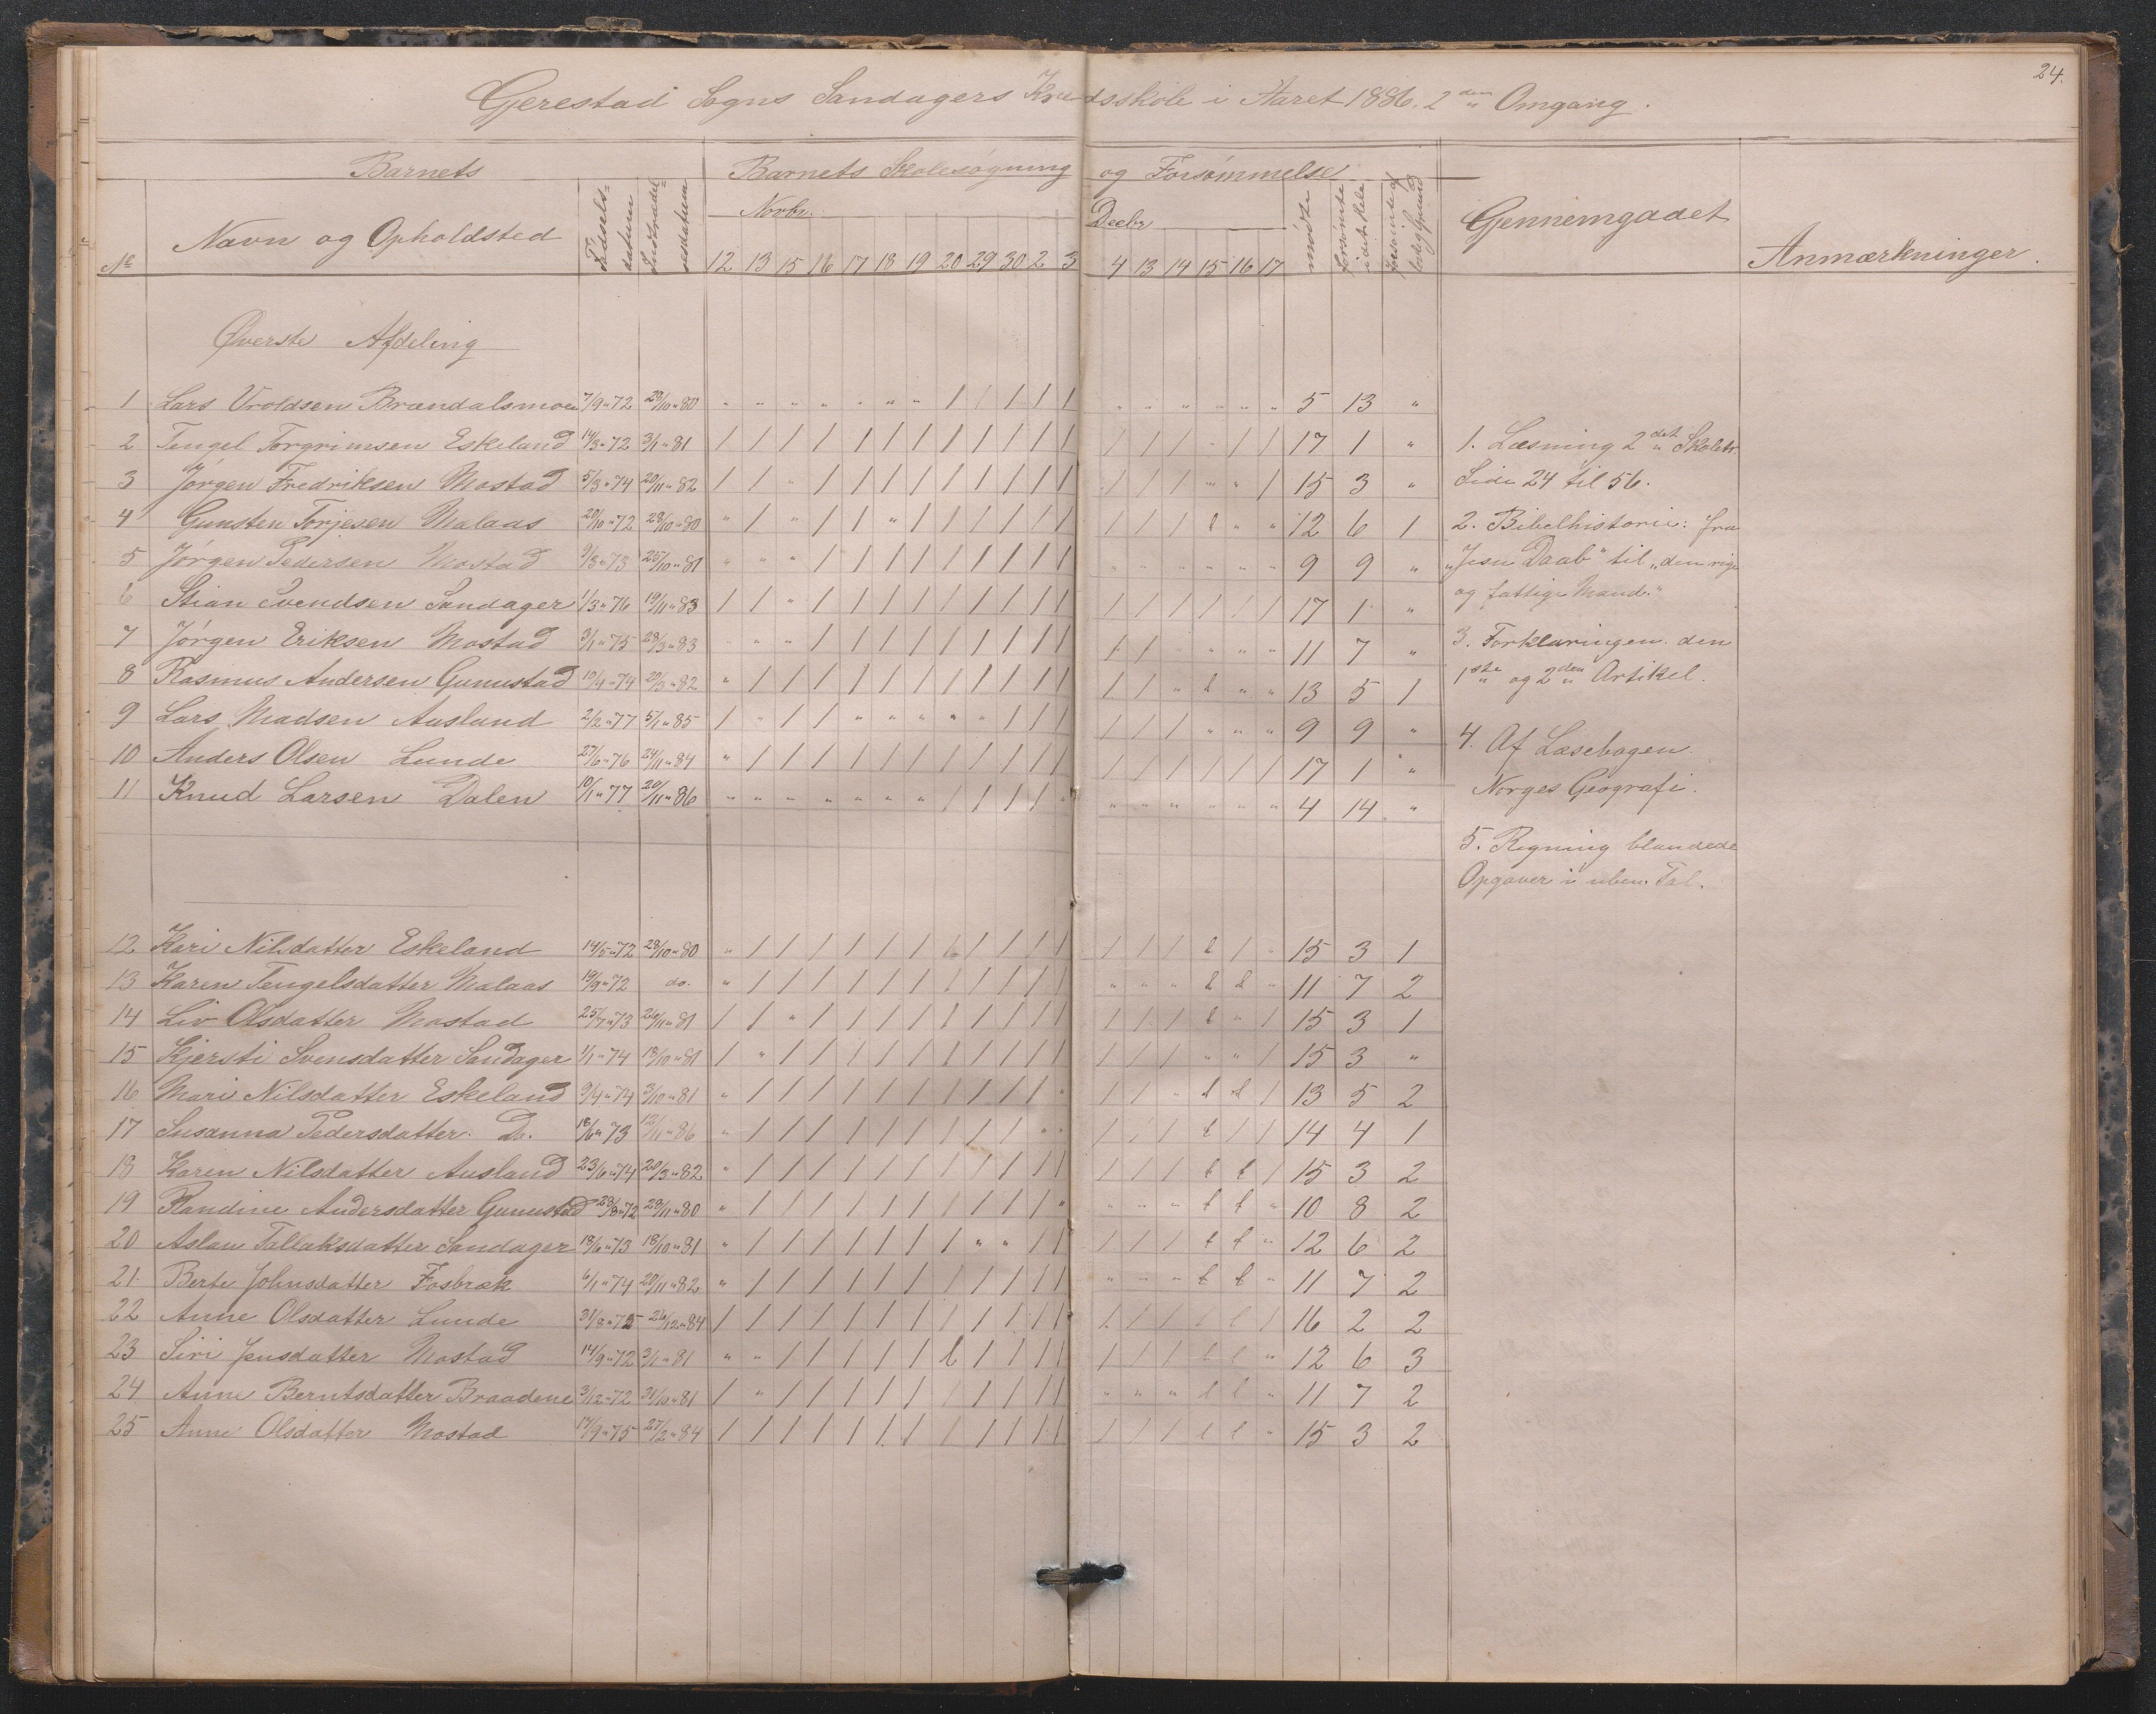 24.
Gjerestad Sogns Sandagers Kredsskole i Aaret 1886, 2den Omgang.
Barnets
Barnets Skolesøgning og Forsømmelse
No
Navn og Opholdsted
Fødselsdatum
Indtrædelsesdatum
Novbr.
12 13 15 16 17 18 19 20 29 30 2 3
Decbr
4 13 14 15 16 17
mødte
forsømte i det Hele
forsømte af lovlig Grund
Gjennemgaaet
Anmærkninger.
Øverste Afdeling
1 Lars Vroldsen Brændalsmoen 7/9 " 72 28/10 " 80 " " " " " " " " / / / / / " " " " " " 5 13 "
2 Tengel Torgrimsen Eskeland 14/3 " 72 3/1 " 81 / / / / / / / / / / / / / / / " / / 17 1 "
3 Jørgen Fredriksen Mostad 5/3 " 74 20/11 " 82 / / " / / / / / / / / / / / / " " / 15 3 "
4 Gunsten Torjesen Malaas 20/10 " 72 28/10 " 80 " / " / / " / / / / / / / / / l " " 12 6 1
5 Jørgen Pedersen Mostad 9/3 " 73 25/10 " 81 " " " / / / / / / / / / " " " " " " 9 9 "
6 Stian Svendsen Sandager 1/3 " 76 19/11 " 83 / / " / / / / / / / / / / / / / / / 17 1 "
7 Jørgen Eriksen Mostad 3/1 " 75 28/3 " 83 " " " / / / / / / / / / / / " " " " 11 7 "
8 Rasmus Andersen Gunustad 10/4 " 74 20/3 " 82 " / / / / / / / / / / / / / " l " " 13 5 1
9 Lars Madsen Ausland 2/2 " 77 5/1 " 85 / " / / " " " " " / / / / / / " " " 9 9 "
10 Anders Olsen Lunde 27/6 " 76 24/11 " 84 " / / / / / / / / / / / / / / / / / 17 1 "
11 Knud Larsen Dalen 10/1 " 77 20/11 " 86 " " " " " " " / / / / " " " " " " " 4 14 "
12 Kari Nilsdatter Eskeland 14/5 " 72 28/10 " 80 " / / / / / / / / / / / / / / l / " 15 3 1
13 Karen Tengelsdatter Malaas 19/9 " 72 do. " / / / / / / / / / / / " " " l l " 11 7 2
14 Liv Olsdatter Mostad 25/7 " 73 26/11 " 81 / / " / / / / / / / / / / / / l " / 15 3 1
15 Kjersti Svensdatter Sandager 1/1 " 74 18/10 " 81 / " / / / / / / / / / / / / / " " / 15 3 "
16 Mari Nilsdatter Eskeland 9/4 " 74 3/10 " 81 " / / / / / / / / / / " / / " l l / 13 5 2
17 Susanna Pedersdatter. Do. 18/6 " 73 12/11 " 86 " / / / / / / / / / " " / / / l / / 14 4 1
18 Karen Nilsdatter Ausland 23/6 " 74 20/3 " 82 " / / / / / / / / / / / / / / l l / 15 3 2
19 Randine Andersdatter Gunustad 28/8 " 72 28/11 " 80 " / / / / / / / / / / " " " " l l " 10 8 2
20 Aslau Tallaksdatter Sandager 18/6 " 73 18/10 " 81 " / / / / / / / " " / / / / / l l " 12 6 2
21 Berte Johnsdatter Fosbræk 6/1 " 74 20/11 " 82 " / / / / / / / / / / / " " " l l " 11 7 2
22 Anne Olsdatter Lunde 31/8 " 75 26/12 " 84 / / / / / / / / / / / / / / / l l / 16 2 2
23 Siri Jensdatter Mostad 14/9 " 72 3/1 " 81 " " / / / / / l / / / / / / / l l " 12 6 3
24 Anne Berntsdatter Braadene 3/12 " 72 31/10 " 81 / " / / / / / / / / / / " " " l l " 11 7 2
25 Anne Olsdatter Mostad 17/9 " 75 27/2 " 84 / / / / / / / / / / / / / / / l l " 15 3 2
1. Læsning 2det Skoletr.
Side 24 til 56.
2. Bibelhistorie: fra
"Jesu Daab" til "den rige
og fattige Mand."
3. Forklaringen. den
1ste og 2den Artikel.
4. Af Læsebogen.
Norges Geografi.
5. Regning blandede
Opgaver i uben. Tal.